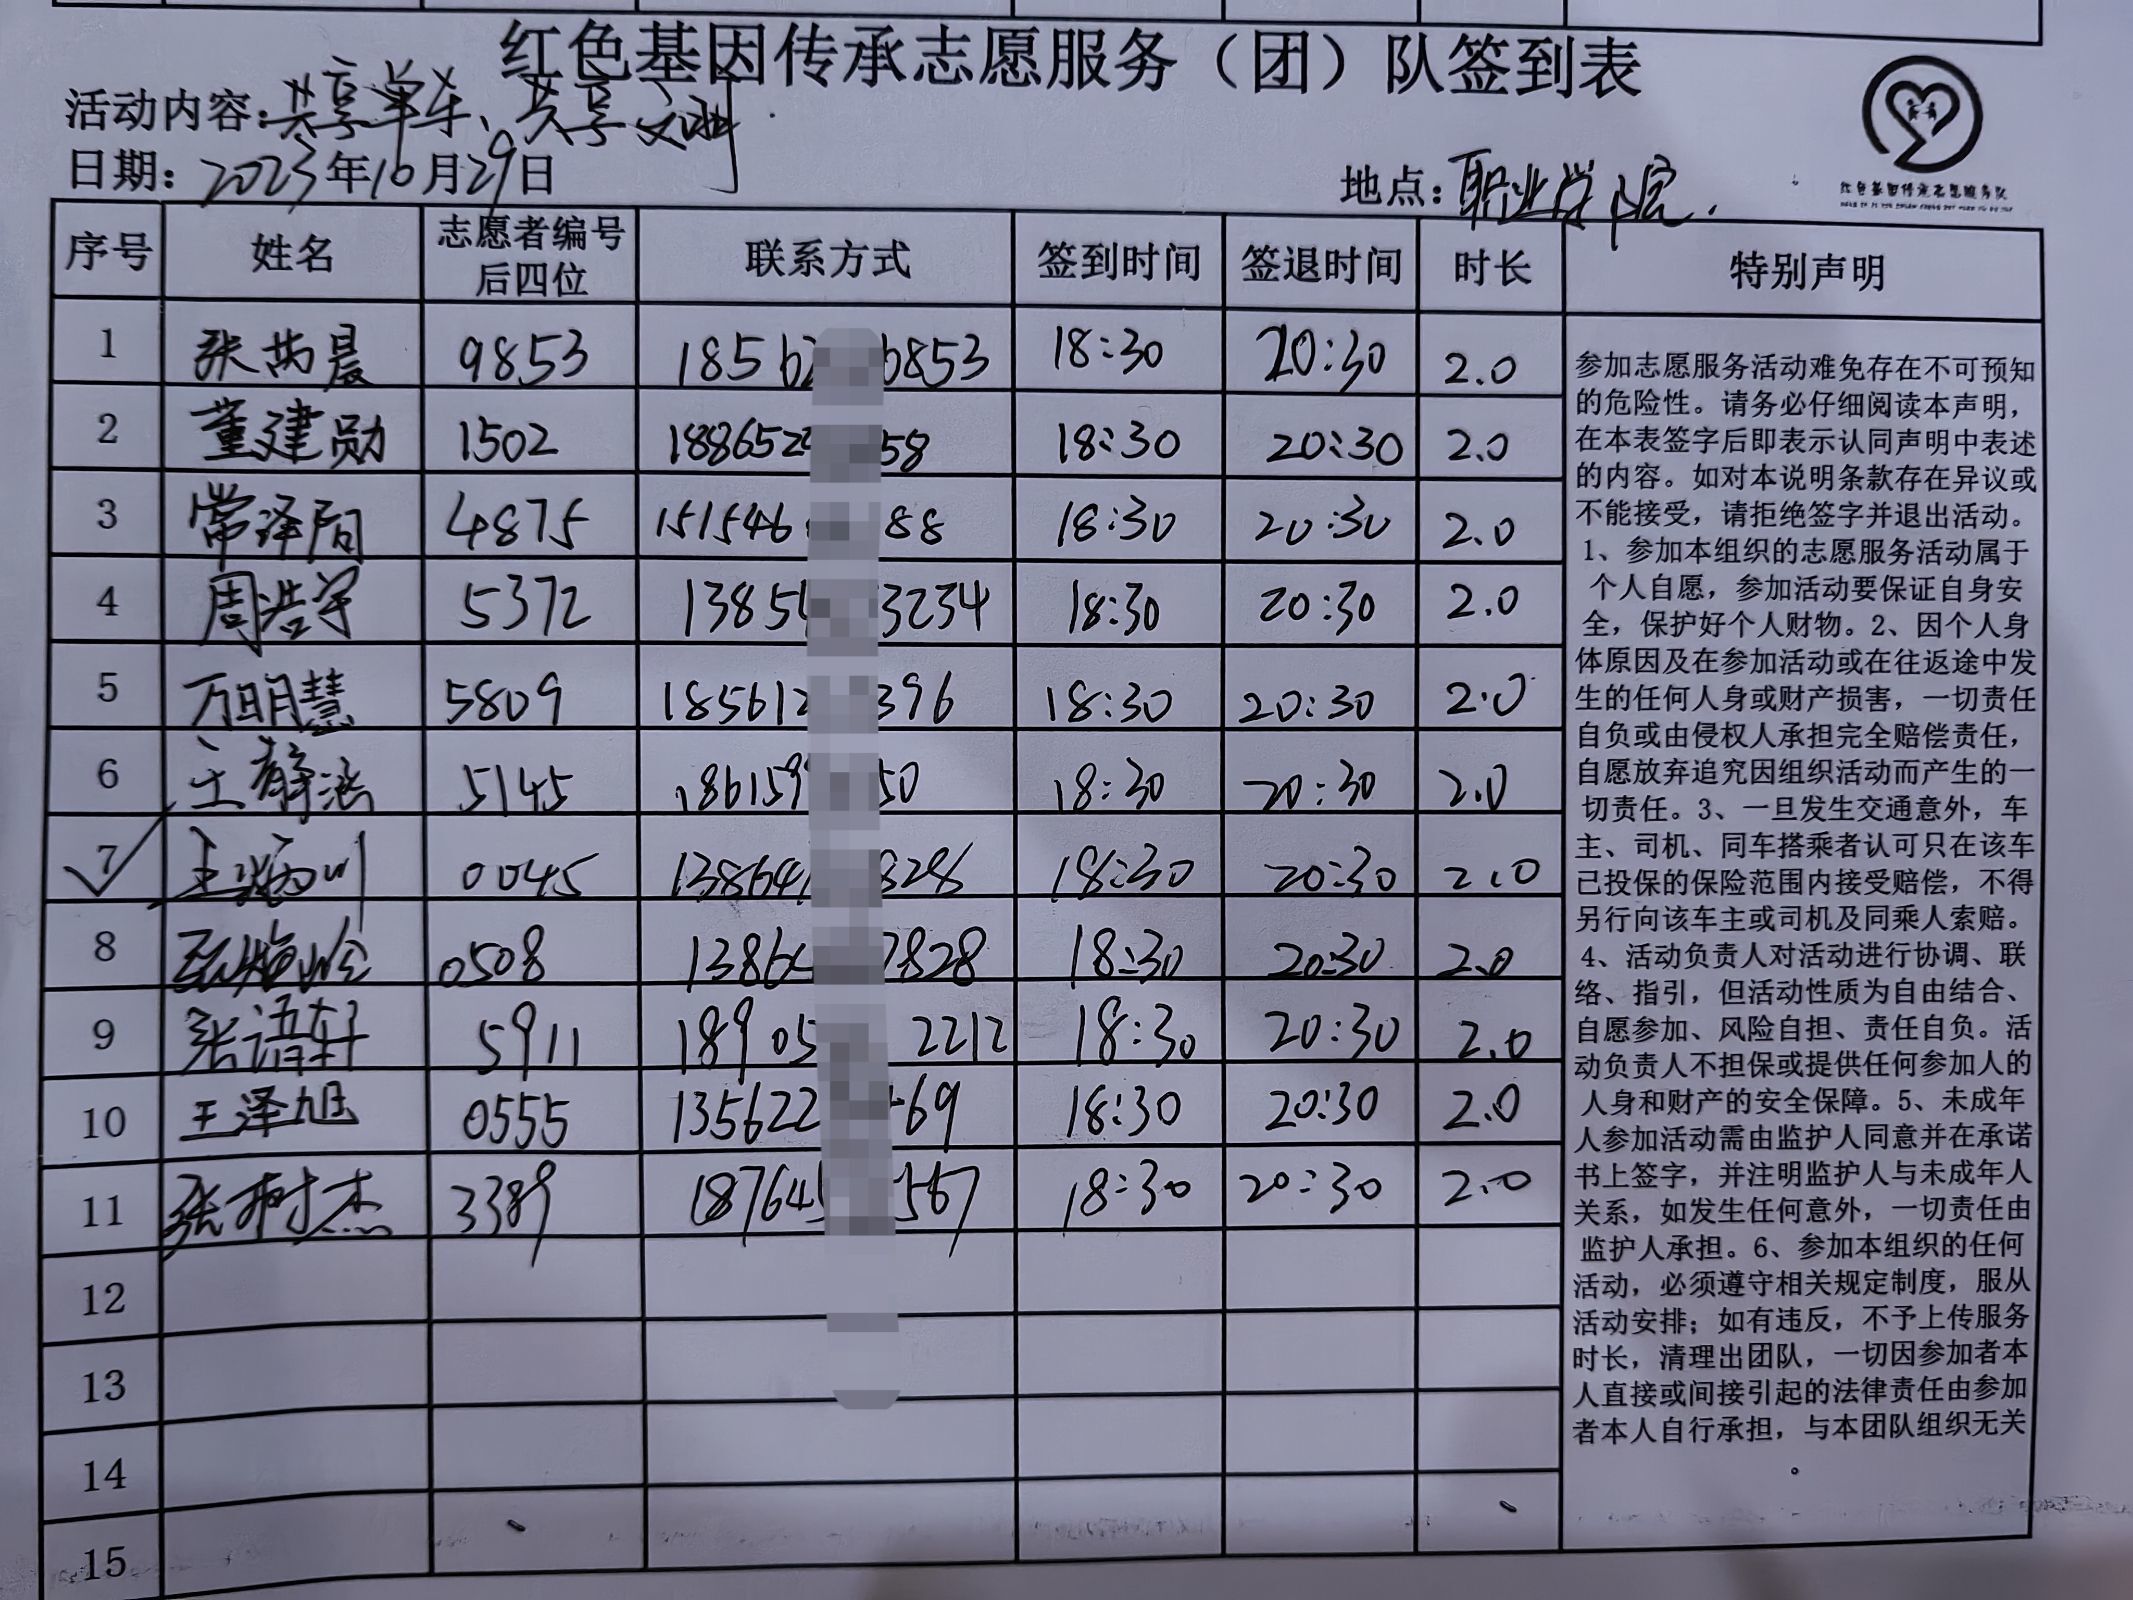 红色基因传承志愿服务（团）队签到表
活动内容:共享单车、共享文明
日期: 2023年10月29日
地点:职业学院.
红色基因传承志愿服务队
序号 姓名 志愿者编号后四位 联系方式 签到时间 签退时间 时长 特别声明
1 9853 1856 6853 18:30 20:30 2.0
2 董建勋 1502 188652 58 18:30 20:30 2.0
3 常泽 4875 151546 88 18:30 20:30 2.0
4 周浩宇 5372 1385 3234 18:30 20:30 2.0
5 万明慧 5809 185612 396 18:30 20:30 2.0
6 王静涵 5145 186159 50 18:30 20:30 2.0
7 王 川 0045 138641 828 18:30 20:30 2.0
8 0508 1386 7828 18:30 20:30 2.0
9 张语轩 5911 18905 2212 18:30 20:30 2.0
10 王泽旭 0555 135622 69 18:30 20:30 2.0
11 张树杰 3389 18764 567 18:30 20:30 2.0
12
13
14
15
参加志愿服务活动难免存在不可预知
的危险性。请务必仔细阅读本声明，
在本表签字后即表示认同声明中表述
的内容。如对本说明条款存在异议或
不能接受，请拒绝签字并退出活动。
1、参加本组织的志愿服务活动属于
个人自愿，参加活动要保证自身安
全，保护好个人财物。2、因个人身
体原因及在参加活动或在往返途中发
生的任何人身或财产损害，一切责任
自负或由侵权人承担完全赔偿责任，
自愿放弃追究因组织活动而产生的一
切责任。3、一旦发生交通意外，车
主、司机、同车搭乘者认可只在该车
已投保的保险范围内接受赔偿，不得
另行向该车主或司机及同乘人索赔。
4、活动负责人对活动进行协调、联
络、指引，但活动性质为自由结合、
自愿参加、风险自担、责任自负。活
动负责人不担保或提供任何参加人的
人身和财产的安全保障。5、未成年
人参加活动需由监护人同意并在承诺
书上签字，并注明监护人与未成年人
关系，如发生任何意外，一切责任由
监护人承担。6、参加本组织的任何
活动，必须遵守相关规定制度，服从
活动安排；如有违反，不予上传服务
时长，清理出团队，一切因参加者本
人直接或间接引起的法律责任由参加
者本人自行承担，与本团队组织无关
。